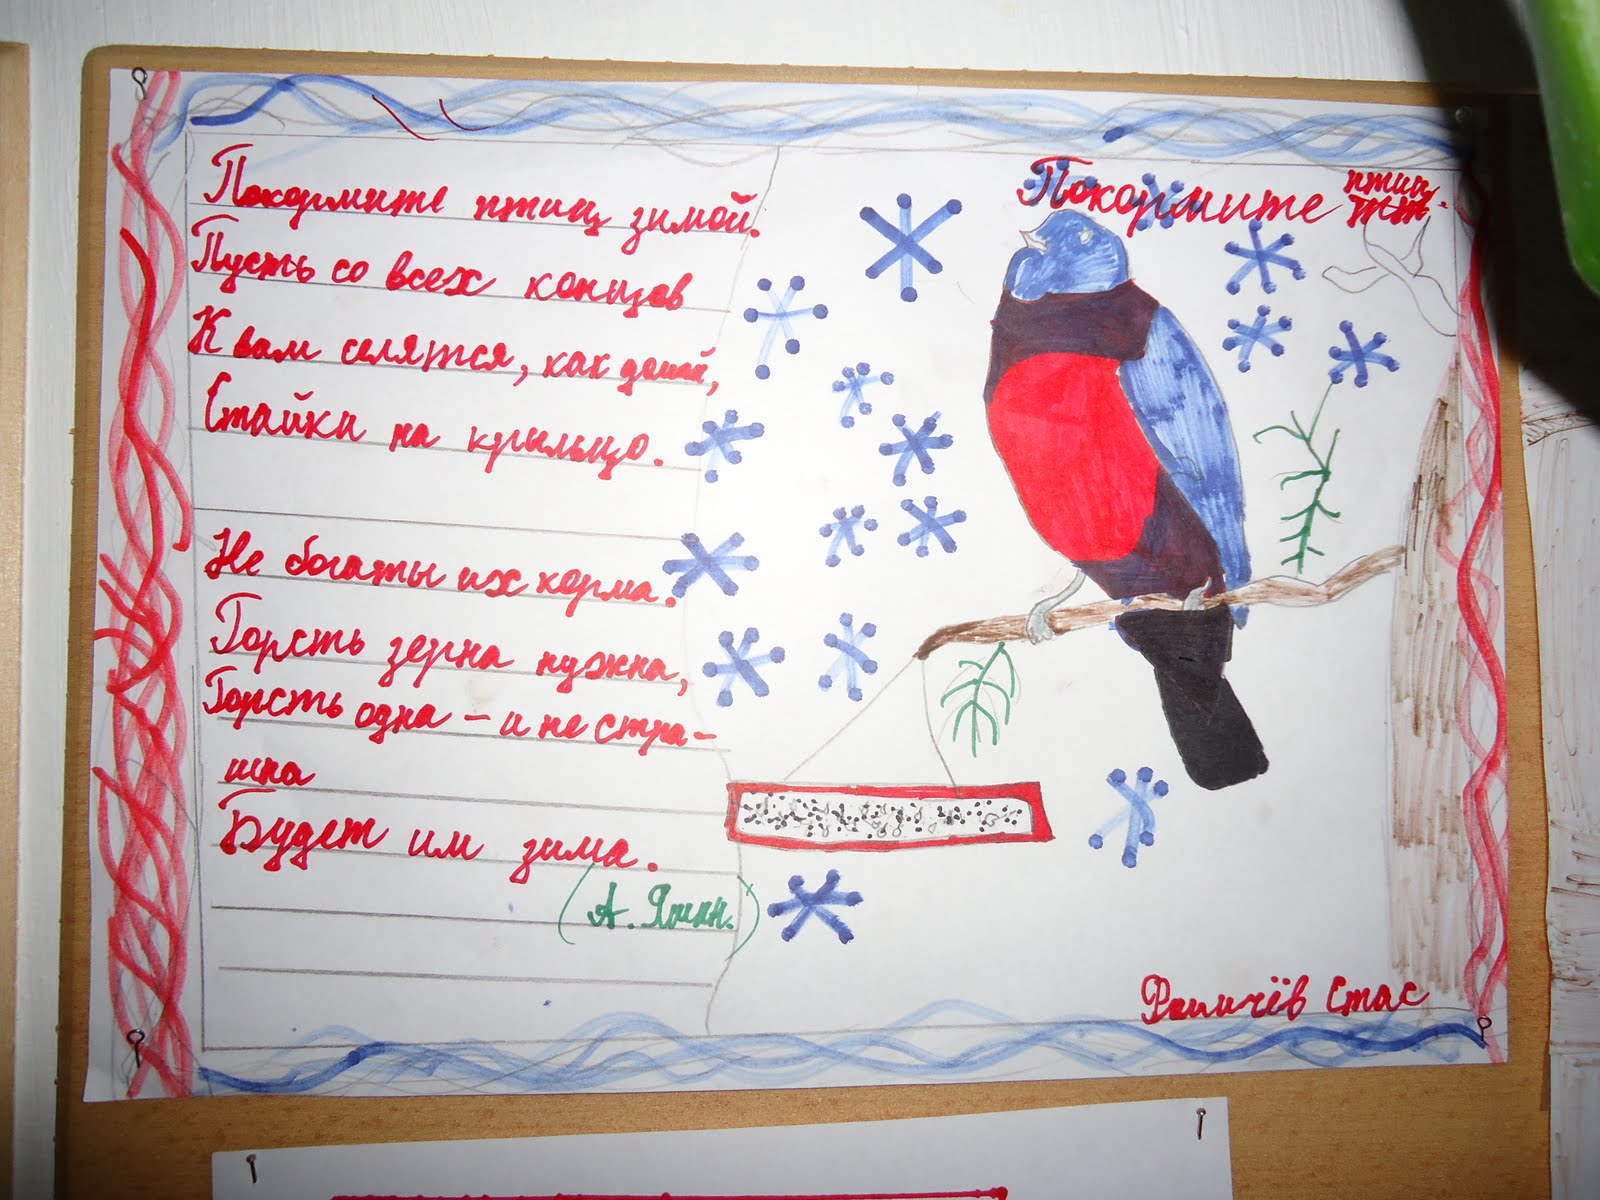 Покормите птиц зимой.
Пусть со всех концов
К вам селятся, как домой,
Стайки на крыльцо.
Не богаты их корма.
Горсть зерна нужна,
Горсть одна - и не стра-
шна
Будет им зима.
(А. Яшин.)
Покормите птиц
Стас